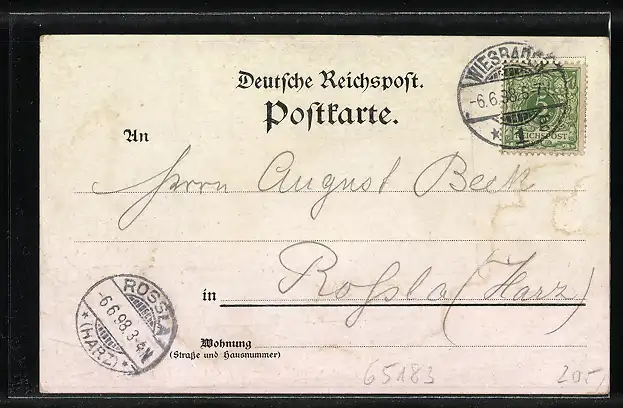 Deutsche Reichspost.
Postkarte.
WIESBADEN
-6.6.98.
* 1
5
REICHSPOST
An
Herrn August Beck
in Roßla (Harz)
ROSSLA
-6.6.98.3-4N
*(HARZ)*
Wohnung
(Straße und Hausnummer)
65183
205,